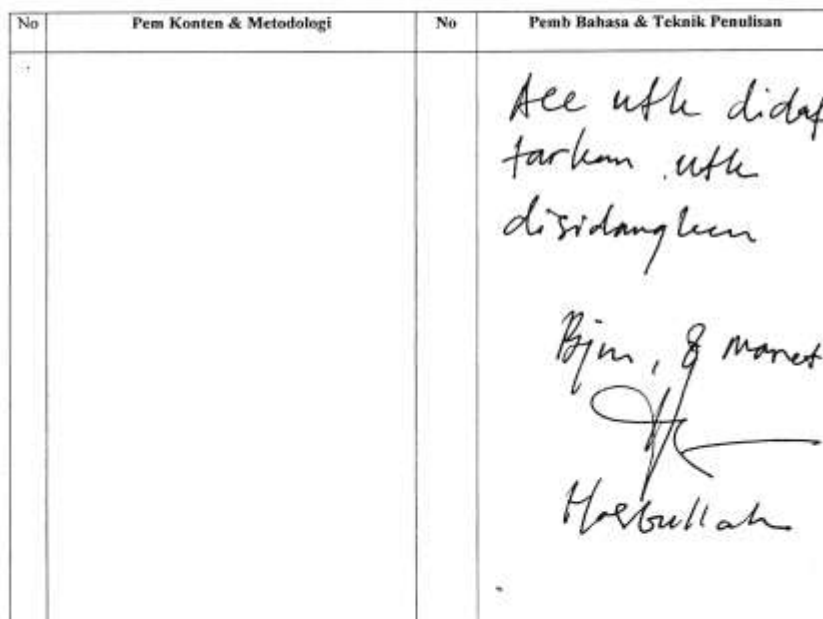 No Pem Konten & Metodologi No Pemb Bahasa & Teknik Penulisan
Acc utk didaf
tarkan utk
disidangkan
Bjm, 8 Maret
Hasbullah